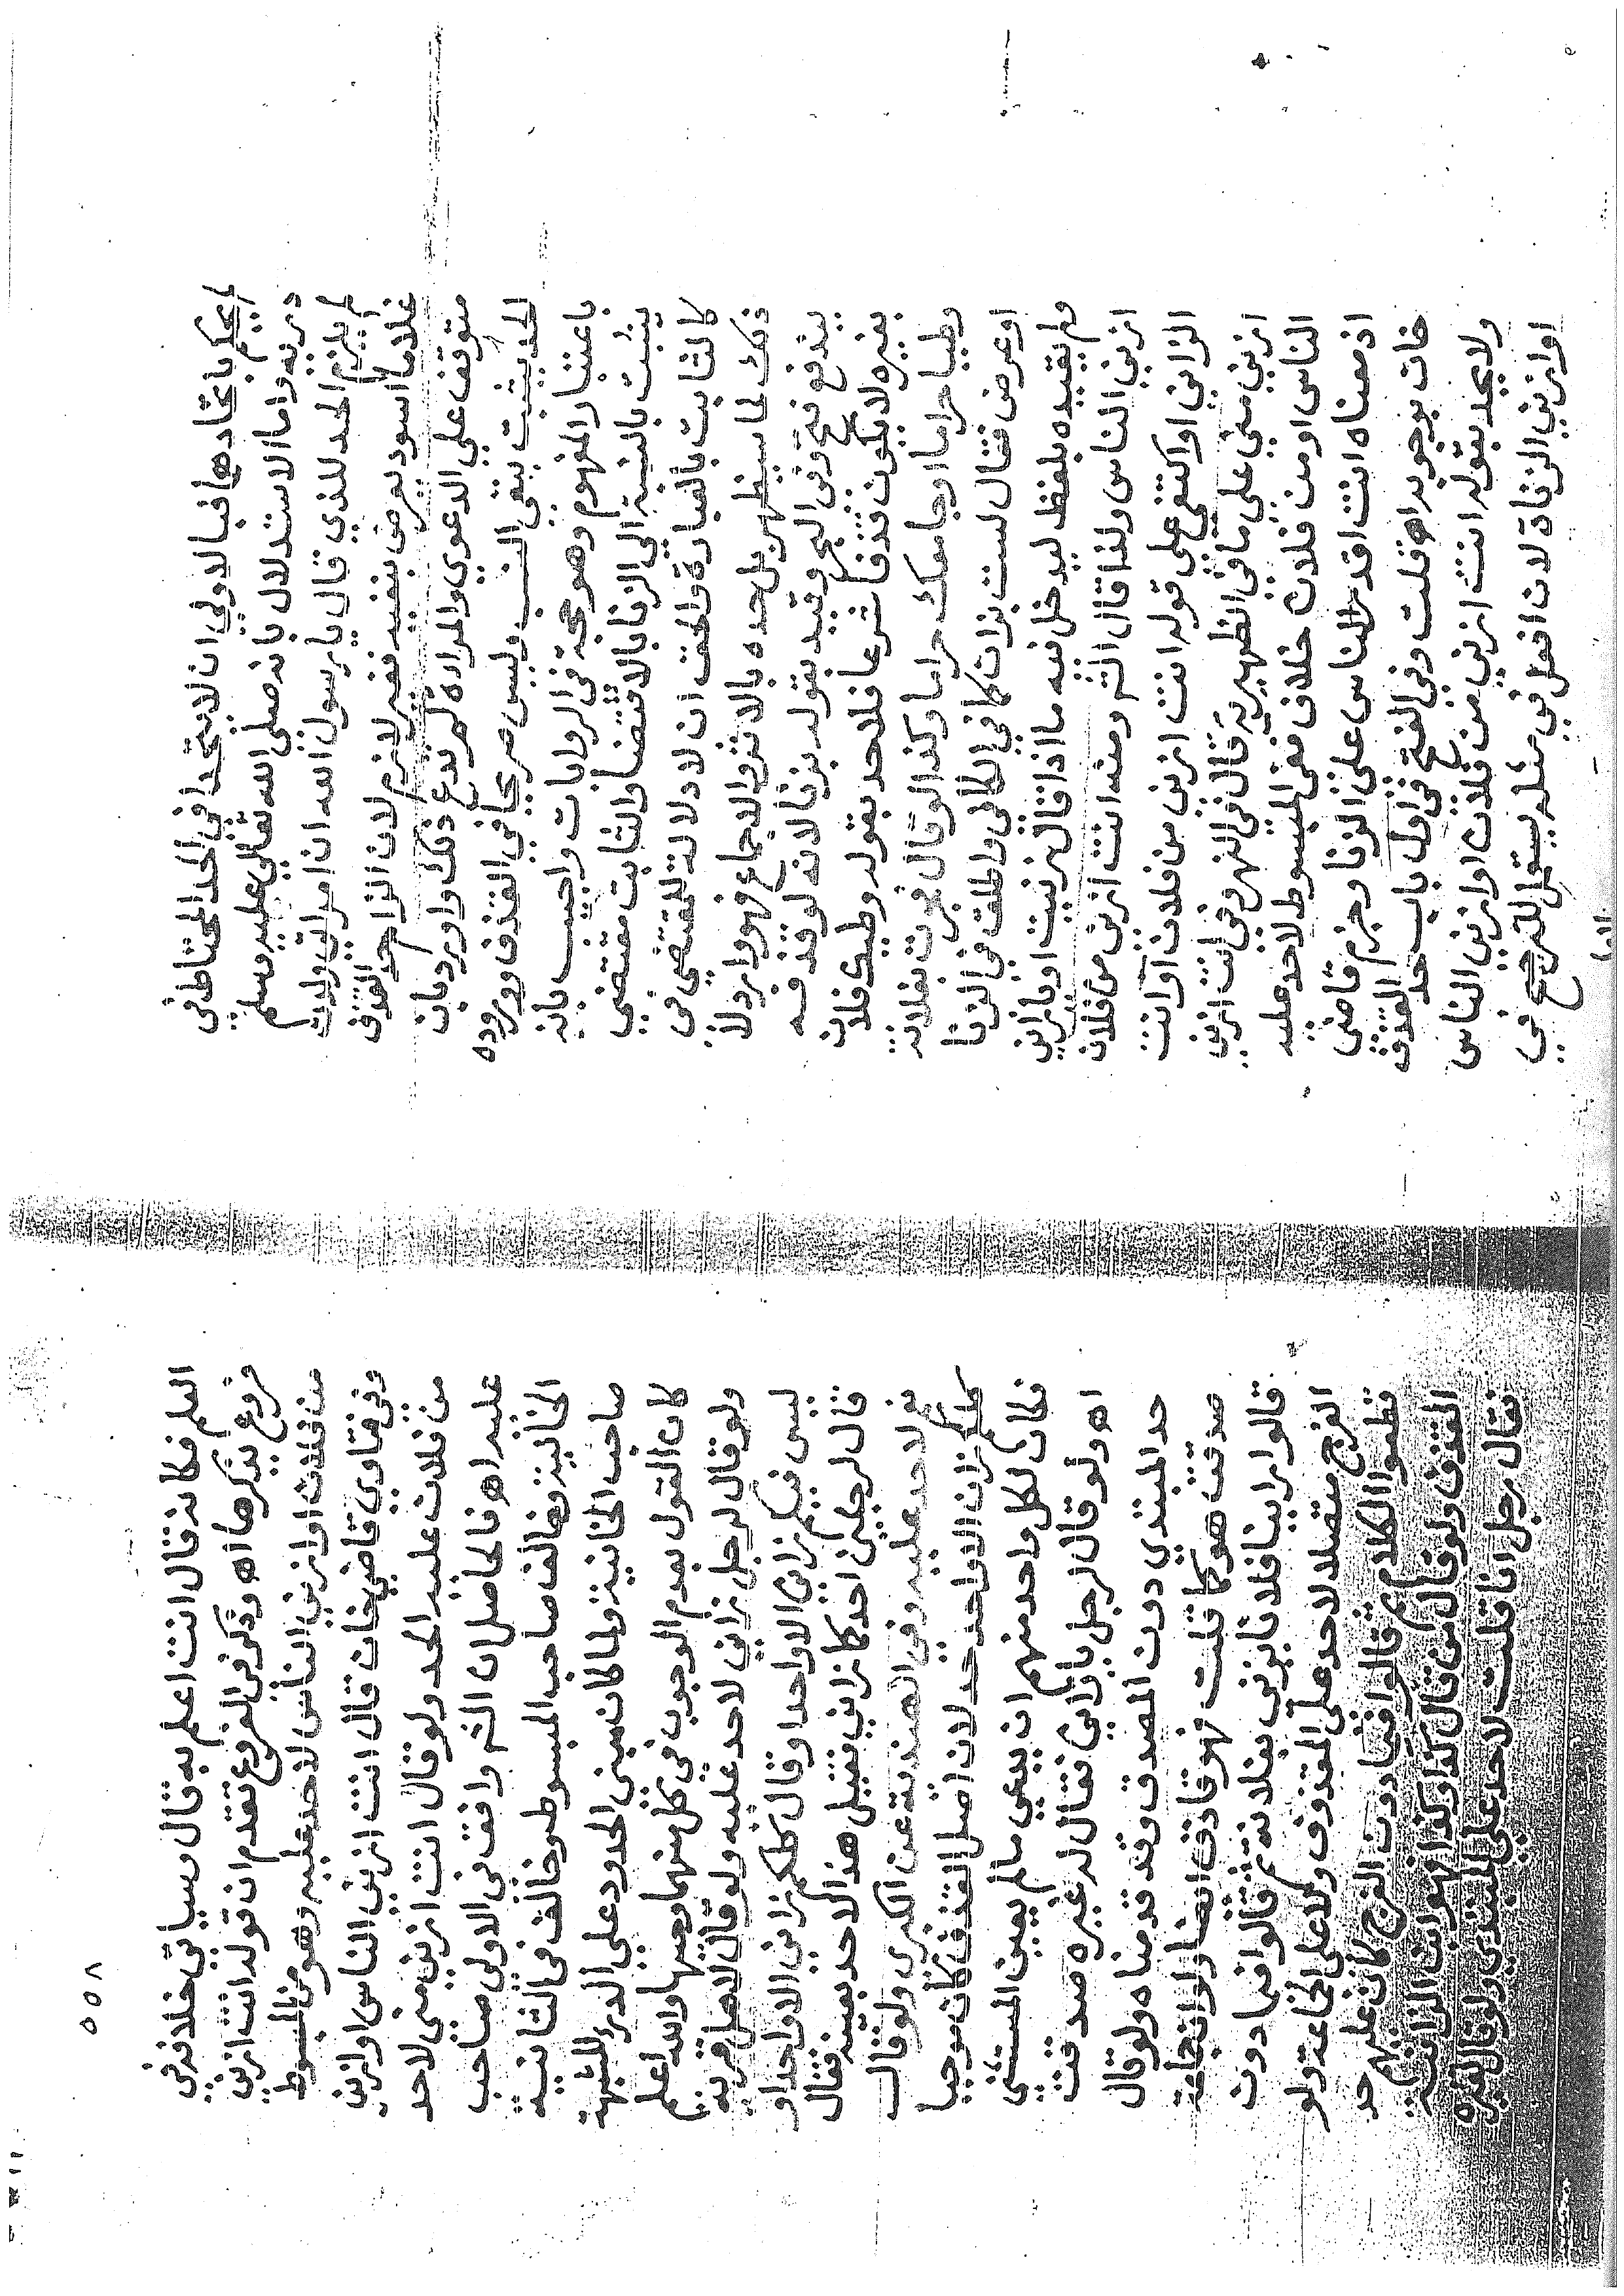 لم يحكم باتحادهما فبالاولي ان لا يتحدا في الحد المحتاط في
درئه واما الاستدلال بانه صلى الله تعالي عليه وسلم
لم يلزم الحد للذي قال يا رسول الله ان امراتي ولدت
غلاما اسود يعرض بنفيه فغير لازم لان الزام حد القذف
متوقف علي الدعوي والمراة لم تدع ذلك واورد بان
الحد يثبت بنفي النسب وليس صريحا في القذف ووروده
باعتبار المفهوم وهو حجة في الروايات واجيب بانه
يثبت بالنسبة الي الزنا بالاقتضا والثابت مقتضي
كالثابت بالعبارة والحق ان لا دلالة للمقتضي في
ذلك لما سيظهر بل حده بالاثر والاجماع فهو وارد لا
يندفع فتح وفي البحر وقيد بقوله بزنا لانه لو قذفه
بغيره لا يكون قذفا شرعا فلا حد بقوله وطيك فلان
وطيا حراما او جامعك حراما وكذا لو قال فجرت بفلانة
او عرض فقال لست بزان كما في الكافي واطلق في الزنا
ولم يقيده بلفظ ليدخل فيه ما اذا قال زنيت او يا زاني
ازني الناس ولذا قال الشر ومثله انت ازني من فلان
الزاني او اكتفي علي قوله انت ازني من فلان او انت
ازني مني علي ما في الظهيرية قال في النهر وفي انت ازني
الناس او من فلان خلاف ففي المبسوط لا حد عليه
اذ معناه انت اقدر الناس على الزنا وجزم قاضي
خان بوجوبه اه قلت وفي الفتح في اول باب حد القذف
ولا يحد بقوله انت ازني من فلان او ازني الناس
او ازني الزناة لان افعل في مثله يستعمل للترجيح في
العلم
558
العلم فكانه قال انت اعلم به قال وسياتي خلافه في
فروع نذكرها اه وذكر في الفروع تقدم ان قوله انت ازني
من فلان او ازني الناس لا حد عليه وهو من المبسوط
وفي فتاوي قاضي خان قال انت ازني الناس او ازني
من فلان عليه الحد ولو قال انت ازني مني لا حد
عليه اه فالحاصل ان الشر وافق في الاولي صاحب
الخانية وخالف صاحب المبسوط وخالف في الثانية
صاحب الخانية ولما كان مبني الحدود علي الدرء للشبهة
كان القول بعدم الوجوب في كل منهما وجيها والله اعلم
ولو قال لرجل زاني لا حد عليه ولو قال لاهل قرية
ليس فيكم زاني الا واحدا وقال كلكم زاني الا واحدا و
قال لرجلين احدكما زاني فقيل هذا لاحد بعينه فقال
نعم لا حد عليه وفي الهندية عن الكبري ولو قال
كلكم زان الا واحد حد لان اصل القذف كان موجبا
فكان لكل واحد منهم ان يدعي ما لم يعين المستثني
اه ولو قال لرجل يا زاني فقال له غيره صدقت
حد المبتدي دون المصدق وقد قدمناه ولو قال
صدقت هو كما قلت فهو قاذف ايضا ولو ان جماعة
قالوا راينا فلانا يزني بفلانة ثم قالوا فيما دون
الفرج متصلا لا حد علي المقذوف ولا علي الجماعة ولو
قطعوا الكلام ثم قالوا فيما دون الفرج كان عليهم حد
القذف ولو قال من قال كذا وكذا فهو ابن الزانية
فقال رجل انا قلت لا حد علي المبتدي ولو قال لغيره